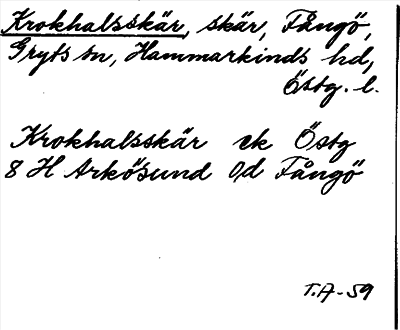 Krokhalsskär, skär, Fångö,
Gryts sn, Hammarkinds hd,
Östg. l.
Krokhalsskär ek Östg
8 H Arkösund 0d Fångö
T.A-59